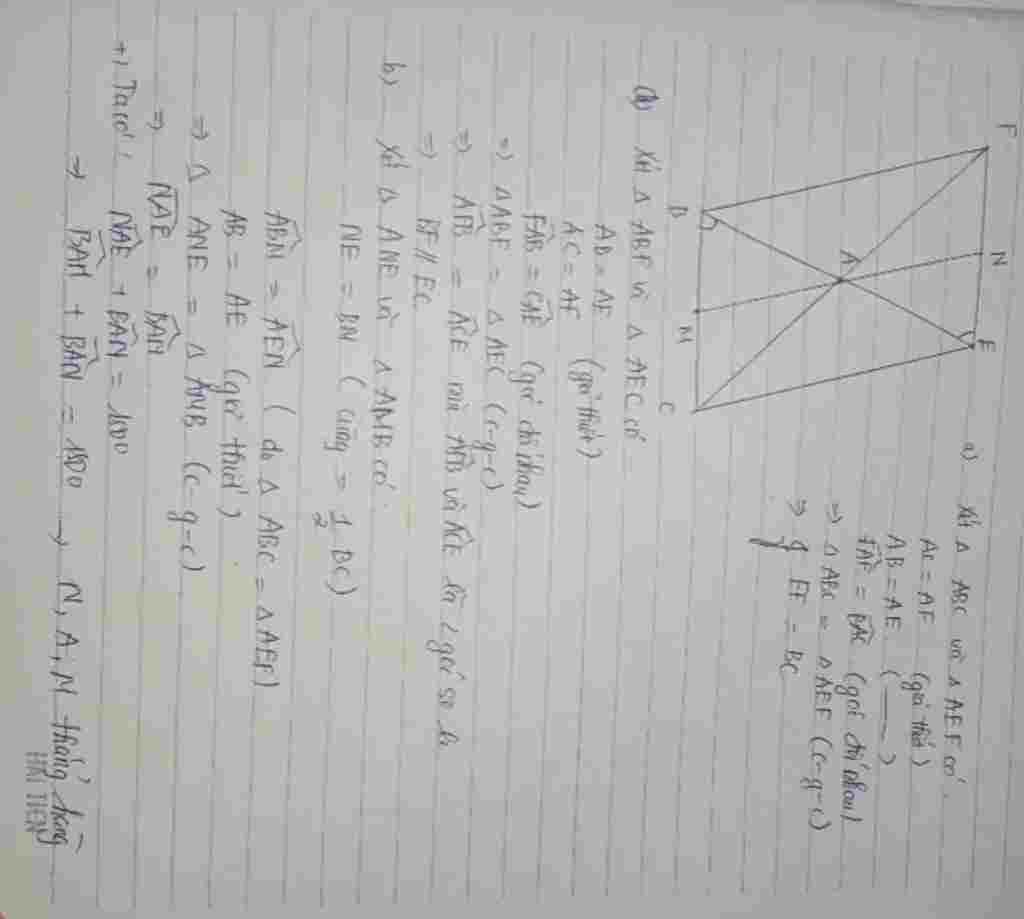 F
N
E
A
B
M
C
a) Xét Δ ABC và Δ AEF có
AC = AF (giả thiết)
AB = AE ( —— )
FAE = BAC (góc đối nhau)
=> Δ ABC = Δ AEF (c-g-c)
=> EF = BC
Xét Δ ABF và Δ AEC có
AB = AE
AC = AF (giả thiết)
FAB = CAE (góc đối nhau)
=> ΔABF = Δ AEC (c-g-c)
=> AFB = ACE mà AFB và ACE là 2 góc so le
=> BF // EC
b) Xét Δ ANE và Δ AMB có
NE = BM (cùng = 1/2 BC)
ABM = AEN (do Δ ABC = Δ AEF)
AB = AE (giả thiết)
=> Δ ANE = Δ AMB (c-g-c)
=> NAE = BAM
+) Ta có: NAE + BAN = 180
=> BAM + BAN = 180 → N, A, M thẳng hàng
HẢI TIẾN